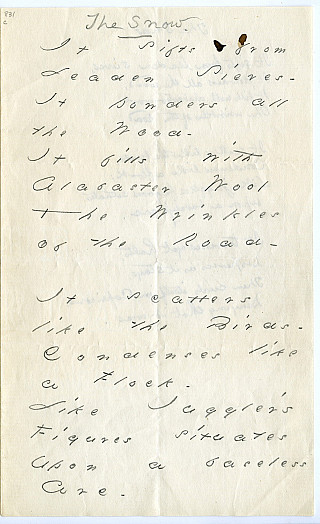 831
The Snow.
It sifts from
Leaden Sieves -
It powders all
the Wood -
It fills with
Alabaster Wool
The Wrinkles
of the Road -
It scatters
like the Birds -
Condenses like
a Flock -
Like Juggler's
Figures situates
Upon a baseless
Arc -